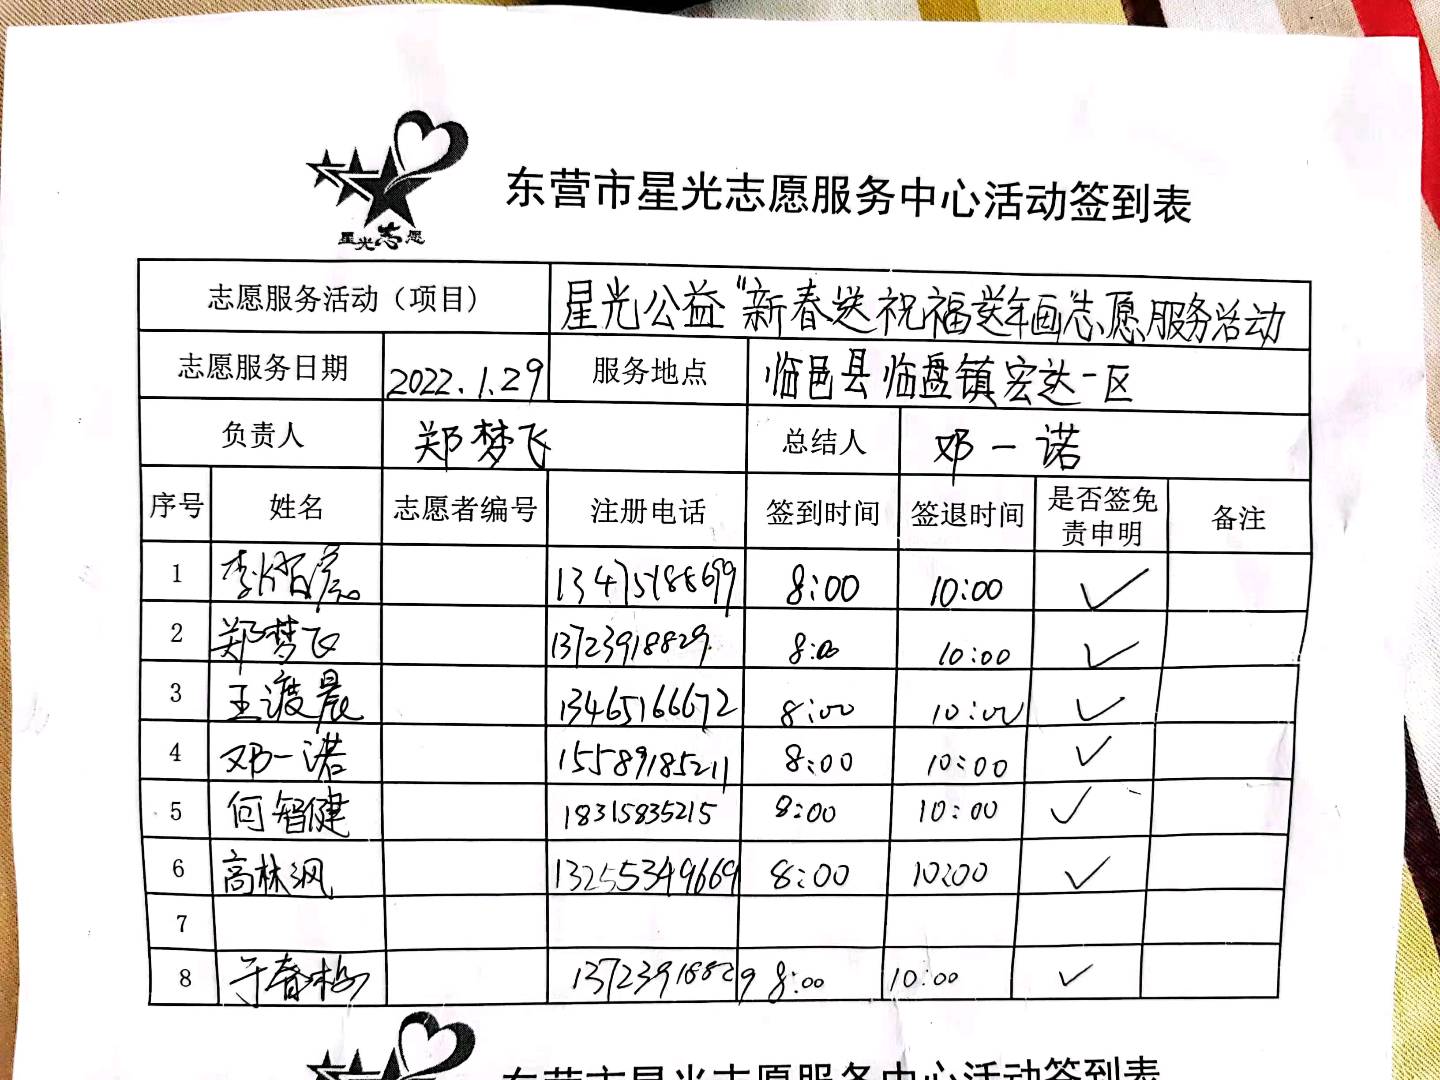 星光志愿
东营市星光志愿服务中心活动签到表
志愿服务活动（项目） 星光公益“新春送祝福送年画”志愿服务活动
志愿服务日期 2022.1.29 服务地点 临邑县临盘镇宏达一区
负责人 郑梦飞 总结人 邓一诺
序号 姓名 志愿者编号 注册电话 签到时间 签退时间 是否签免责申明 备注
1 李 13475188699 8:00 10:00 ✓
2 郑梦飞 13723918829 8:00 10:00 ✓
3 王渡晨 13465166672 8:00 10:00 ✓
4 邓一诺 15589185211 8:00 10:00 ✓
5 何智健 18315835215 8:00 10:00 ✓
6 高林沨 13255349669 8:00 10:00 ✓
7
8 于春梅 13723918829 8:00 10:00 ✓
东营市星光志愿服务中心活动签到表